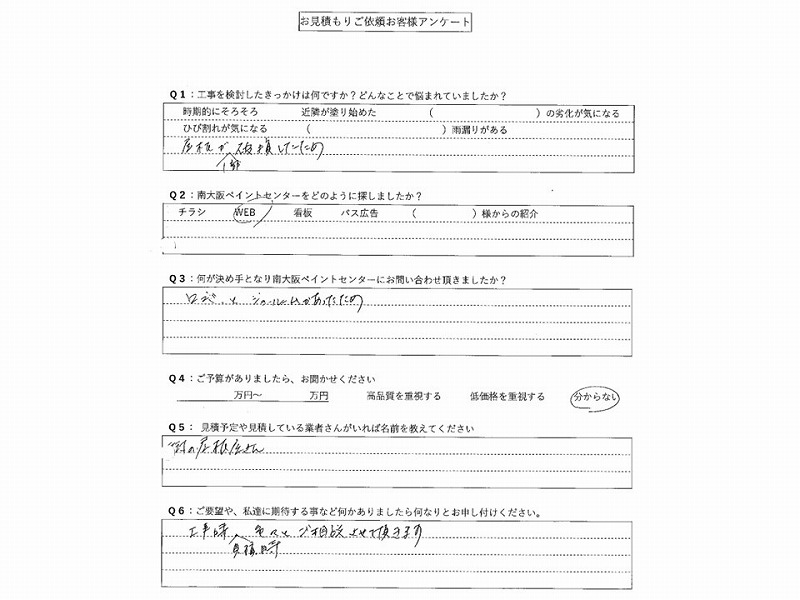 お見積もりご依頼お客様アンケート
Q1：工事を検討したきっかけは何ですか？どんなことで悩まれていましたか？
時期的にそろそろ 近隣が塗り始めた （ ）の劣化が気になる
ひび割れが気になる （ ）雨漏りがある
屋根が破損したため
Q2：南大阪ペイントセンターをどのように探しましたか？
チラシ WEB 看板 バス広告 （ ）様からの紹介
Q3：何が決め手となり南大阪ペイントセンターにお問い合わせ頂きましたか？
ショールームがあったため
Q4：ご予算がありましたら、お聞かせください
万円～ 万円 高品質を重視する 低価格を重視する 分からない
Q5： 見積予定や見積している業者さんがいれば名前を教えてください
の屋根屋さん
Q6：ご要望や、私達に期待する事など何かありましたら何なりとお申し付けください。
工事時 色々とご相談させて頂きます
見積時